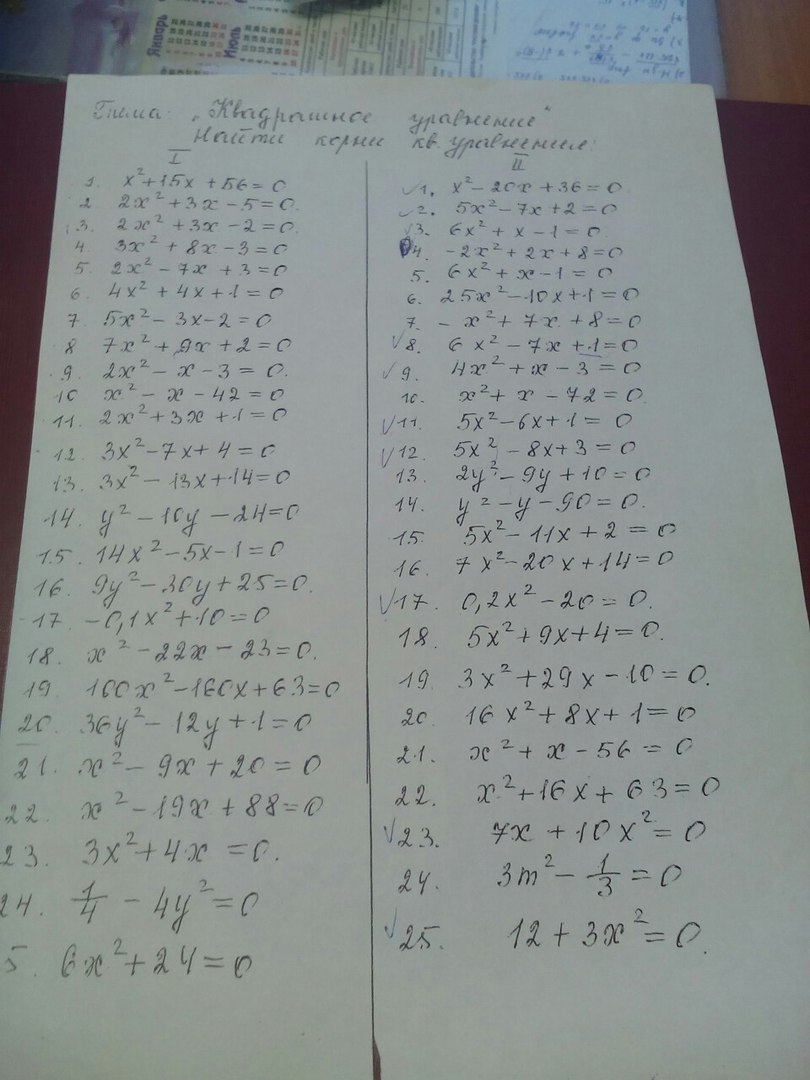 Январь
Июль
Тема: „Квадратное уравнение"
Найти корни кв. уравнения:
I
1. x²+15x+56=0
2 2x²+3x-5=0.
3. 2x²+3x-2=0.
4. 3x²+8x-3=0
5. 2x²-7x+3=0
6. 4x²+4x+1=0
7. 5x²-3x-2=0
8 7x²+9x+2=0
9. 2x²-x-3=0.
10 x²-x-42=0
11. 2x²+3x+1=0
12. 3x²-7x+4=0
13. 3x²-13x+14=0
14. y²-10y-24=0
15. 14x²-5x-1=0
16. 9y²-30y+25=0.
17. -0,1x²+10=0
18. x²-22x-23=0.
19. 100x²-160x+63=0
20. 36y²-12y+1=0
21. x²-9x+20=0
22. x²-19x+88=0
23. 3x²+4x=0.
24. 1/4-4y²=0
5. 6x²+24=0
II
✓1. x²-20x+36=0.
✓2. 5x²-7x+2=0
✓3. 6x²+x-1=0.
4. -2x²+2x+8=0
5. 6x²+x-1=0
6. 25x²-10x+1=0
7. -x²+7x+8=0
✓8. 6x²-7x+1=0
✓9. 4x²+x-3=0
10. x²+x-72=0.
✓11. 5x²-6x+1=0
✓12. 5x²-8x+3=0
13. 2y²-9y+10=0
14. y²-y-90=0.
15. 5x²-11x+2=0
16. 7x²-20x+14=0
✓17. 0,2x²-20=0.
18. 5x²+9x+4=0.
19. 3x²+29x-10=0.
20 16x²+8x+1=0
21. x²+x-56=0
22. x²+16x+63=0
✓23. 7x+10x²=0
24. 3m²-1/3=0
✓25. 12+3x²=0.